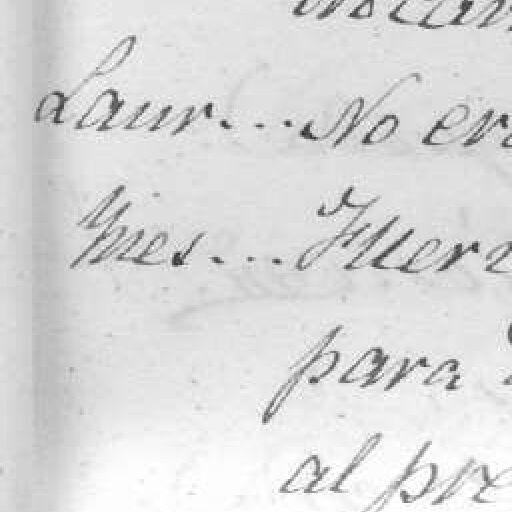 Laur... No era
Ynes... Fuerz
para
al pre